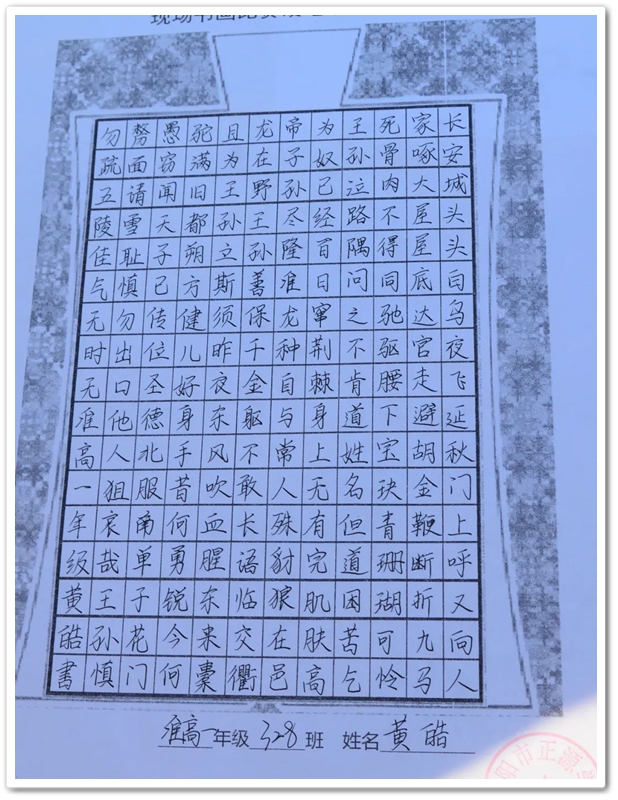 长安城头头白乌夜飞延秋门上呼又向人
家啄大屋屋底达官走避胡金鞭断折九马
死骨肉不得同驰驱腰下宝玦青珊瑚可怜
王孙泣路隅问之不肯道姓名但道困苦乞
为奴已经百日窜荆棘身上无有完肌肤高
帝子孙尽隆准龙种自与常人殊豺狼在邑
龙在野王孙善保千金躯不敢长语临交衢
且为王孙立斯须昨夜东风吹血腥东来囊
驼满旧都朔方健儿好身手昔何勇锐今何
愚窃闻天子已传位圣德北服南单子花门
面请雪耻慎勿出口他人狙哀哉王孙慎
勿疏五陵佳气无时无准高一年级黄皓书
准高一年级 328 班 姓名 黄皓